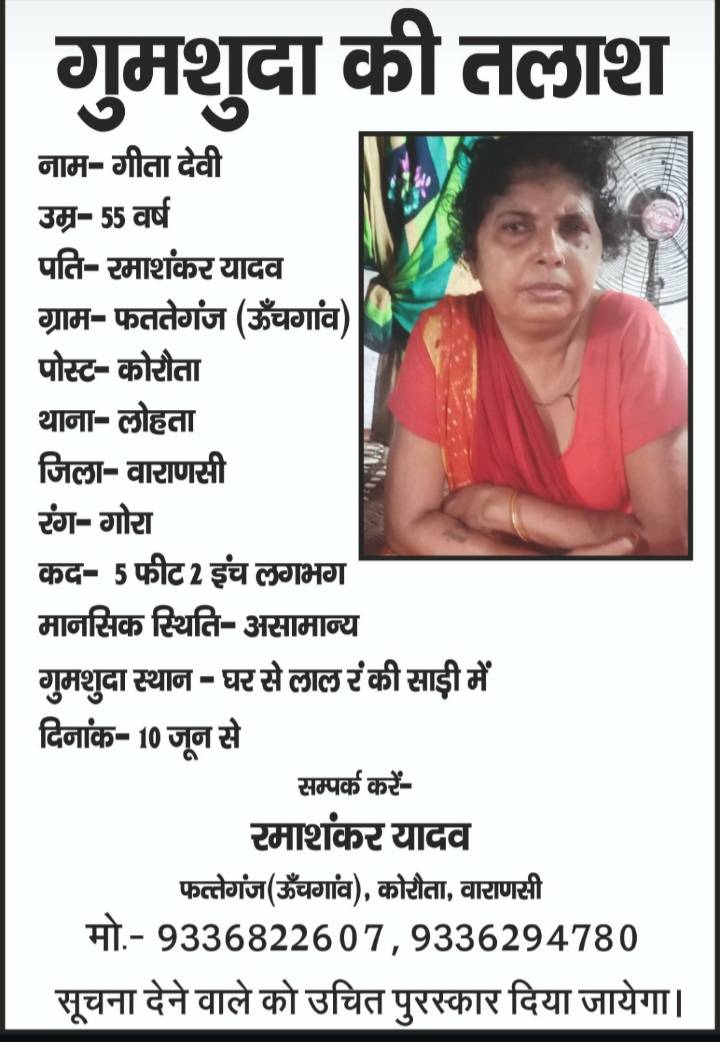 गुमशुदा की तलाश
नाम- गीता देवी
उम्र- 55 वर्ष
पति- रमाशंकर यादव
ग्राम- फततेगंज (ऊँचगांव)
पोस्ट- कोरौता
थाना- लोहता
जिला- वाराणसी
रंग- गोरा
कद- 5 फीट 2 इंच लगभग
मानसिक स्थिति- असामान्य
गुमशुदा स्थान - घर से लाल रं की साड़ी में
दिनांक- 10 जून से
सम्पर्क करें-
रमाशंकर यादव
फत्तेगंज(ऊँचगांव), कोरौता, वाराणसी
मो.- 9336822607, 9336294780
सूचना देने वाले को उचित पुरस्कार दिया जायेगा।